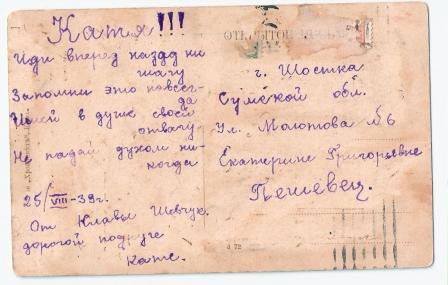 Катя!!!
Иди вперед назад ни
шагу
Запомни это навсег-
да
Имей в душе своей
отвагу
Не падай духом ни-
когда
25/VIII-39г.
От Клавы Шевчук.
дорогой подруге
Кате.
г. Шостка
Сумской обл.
Ул. Молотова №6
Екатерине Григорьевне
Пешевец.